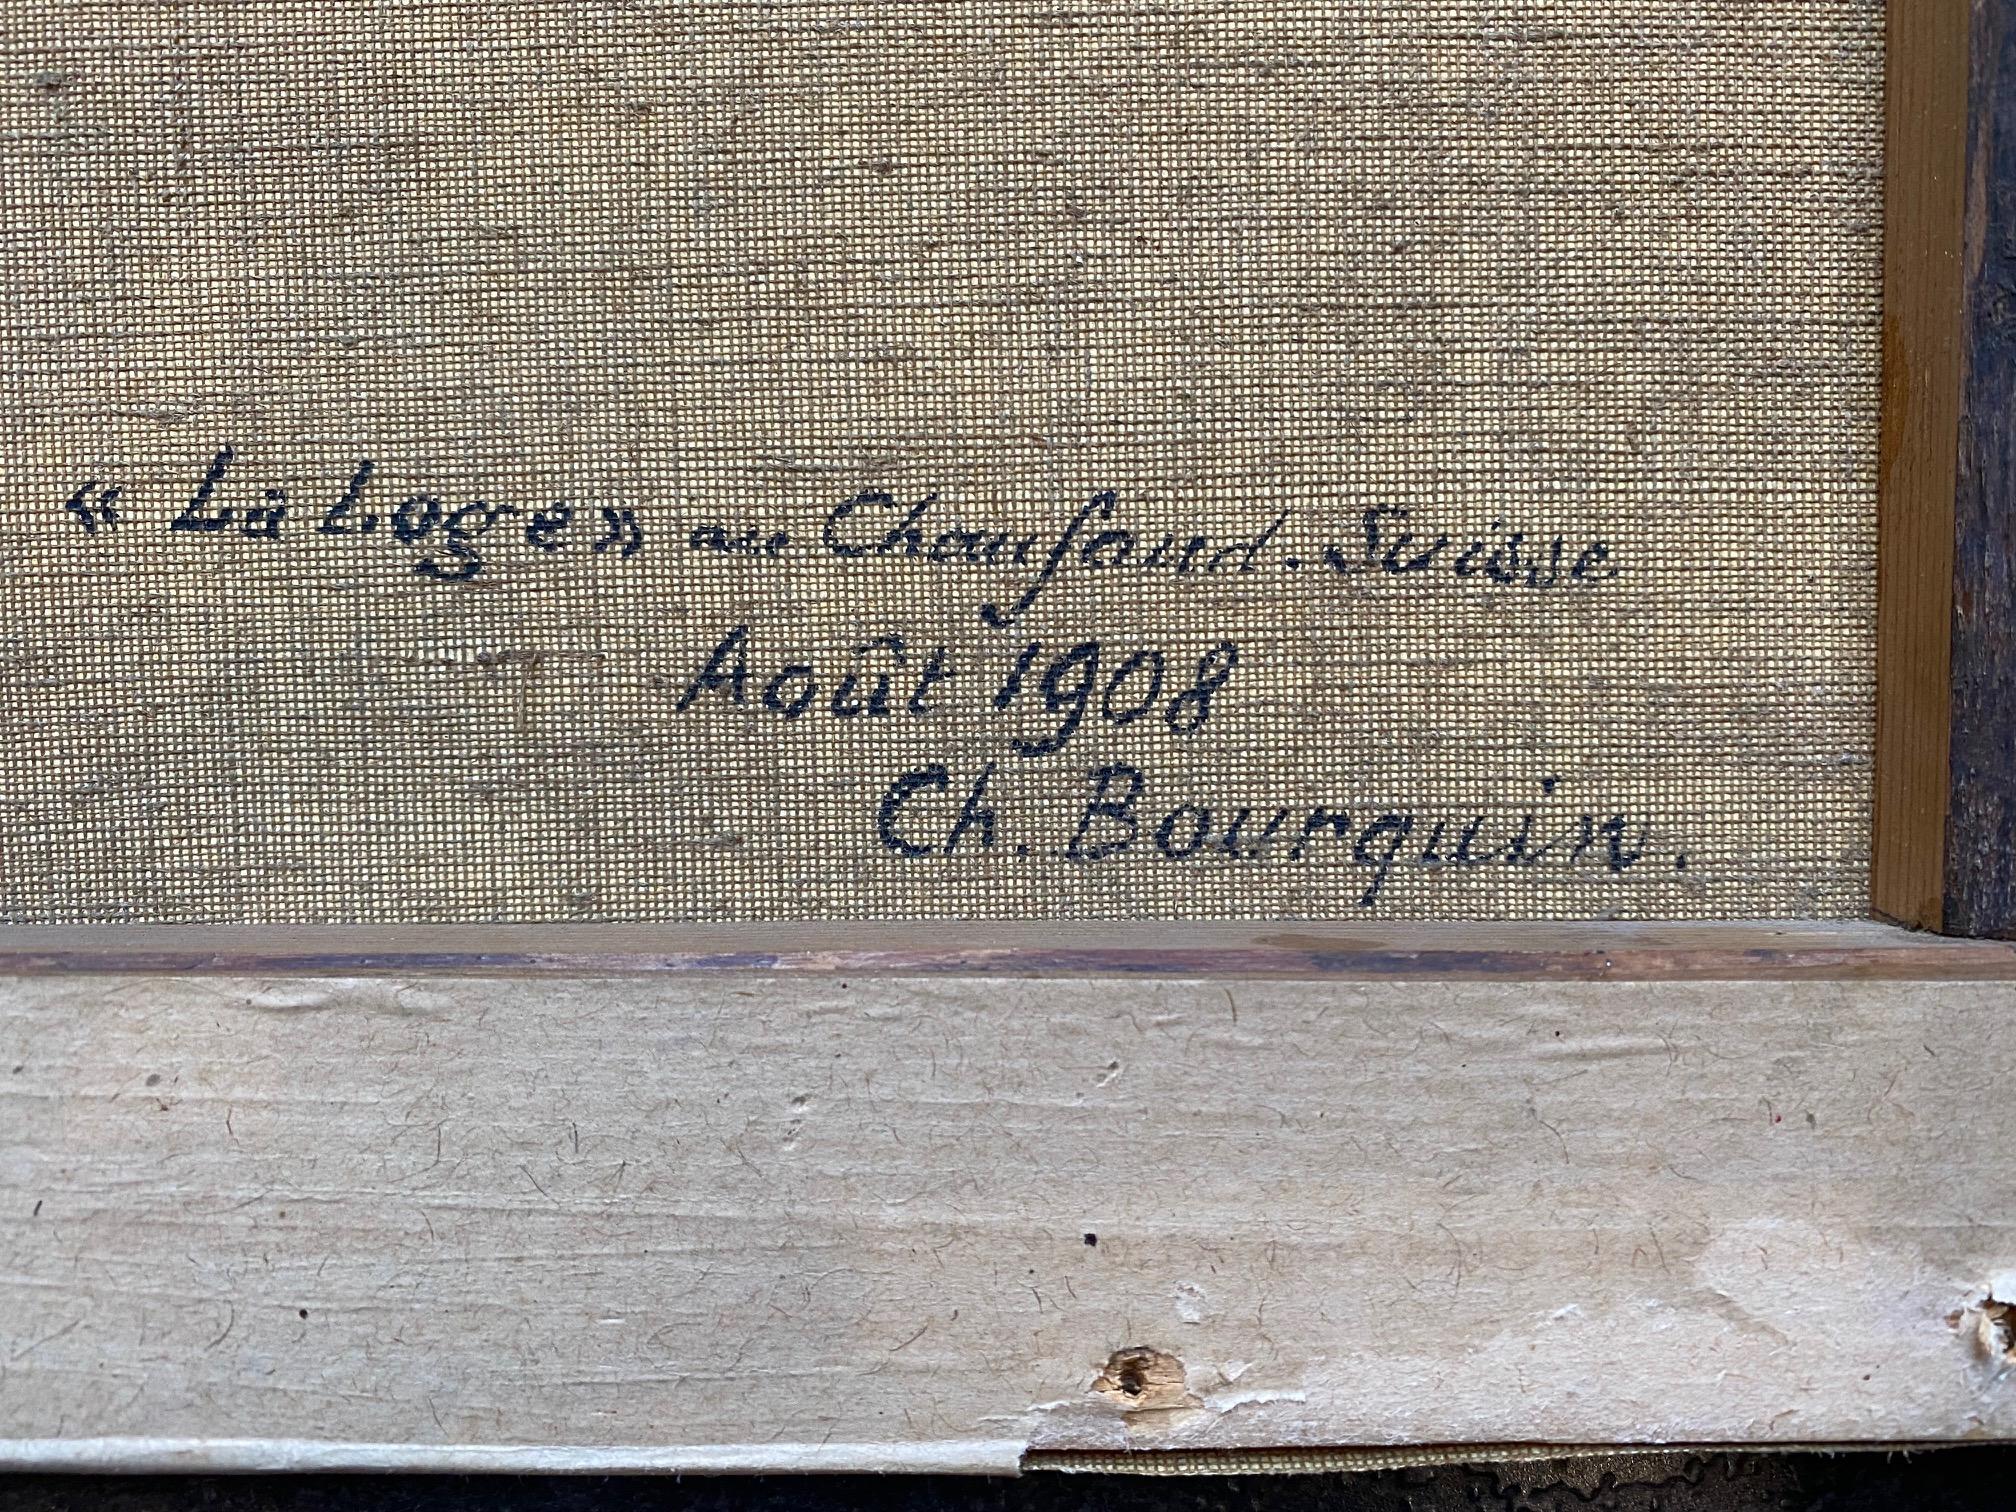 « La Loge » au Chaufaud. Suisse
Août 1908
Ch. Bourquin.